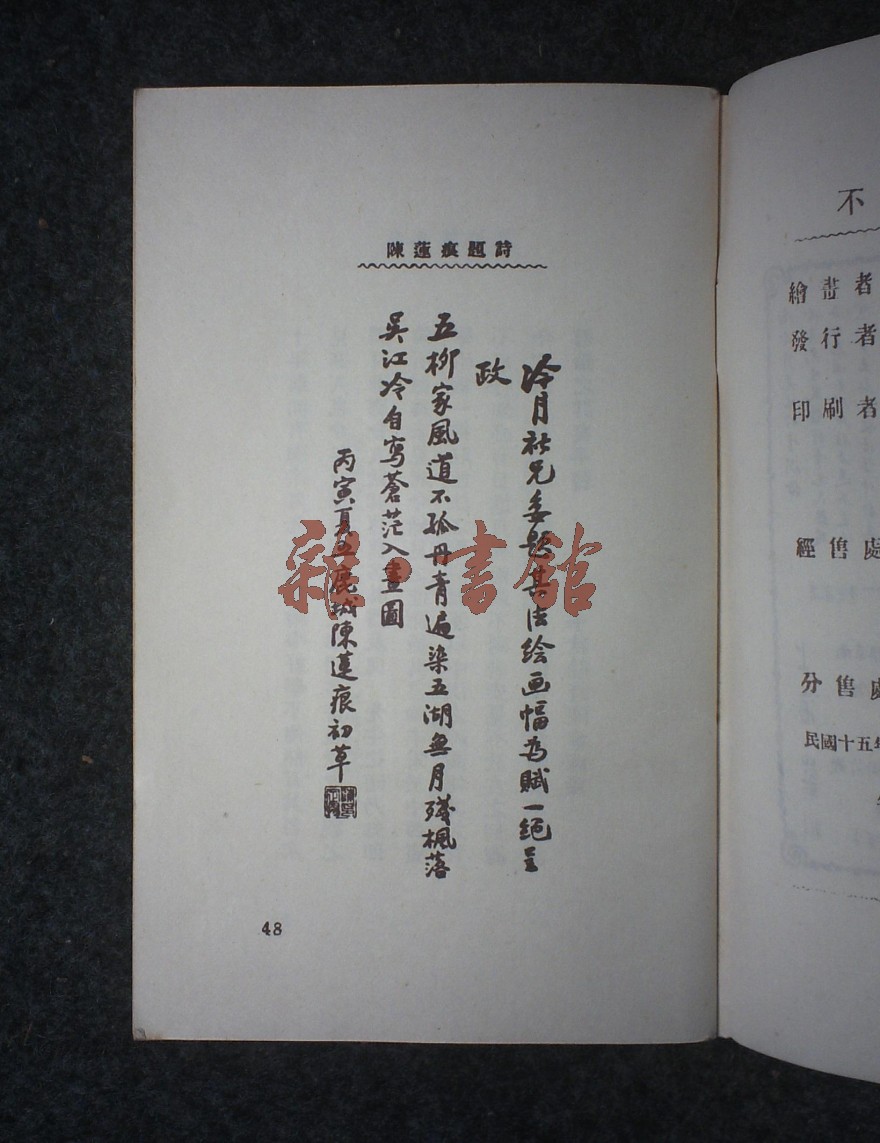 陳蓮痕題詩
冷月社兄委題其法绘画幅为賦一絕呈
政
五柳家風道不孤丹青遍染五湖無月殘楓落
吳江冷自寫蒼茫入畫圖
丙寅夏五鹿城陳蓮痕初草
48
雜·書館
不
繪畫者
發行者
印刷者
經售處
分售處
民國十五年